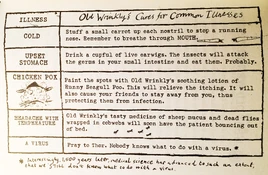 ILLNESS
Old Wrinkly's Cures for Common Illnesses
COLD
Stuff a small carrot up each nostril to stop a running
nose. Remember to breathe through MOUTH.
UPSET
STOMACH
Drink a cupful of live earwigs. The insects will attack
the germs in your small intestine and eat them. Probably.
CHICKEN POX
Paint the spots with Old Wrinkly's soothing lotion of
Runny Seagull Poo. This will relieve the itching. It will
also cause your friends to stay away from you, thus
protecting them from infection.
HEADACHE WITH
TEMPERATURE
Old Wrinkly's tasty medicine of sheep mucus and dead flies
wrapped in cobwebs will soon have the patient bouncing
out of bed.
A VIRUS
Pray to Thor. Nobody knows what to do with a virus. *
* Interestingly, 1,000 years later, medical science has advanced to such an extent,
that we still don't know what to do with a virus.